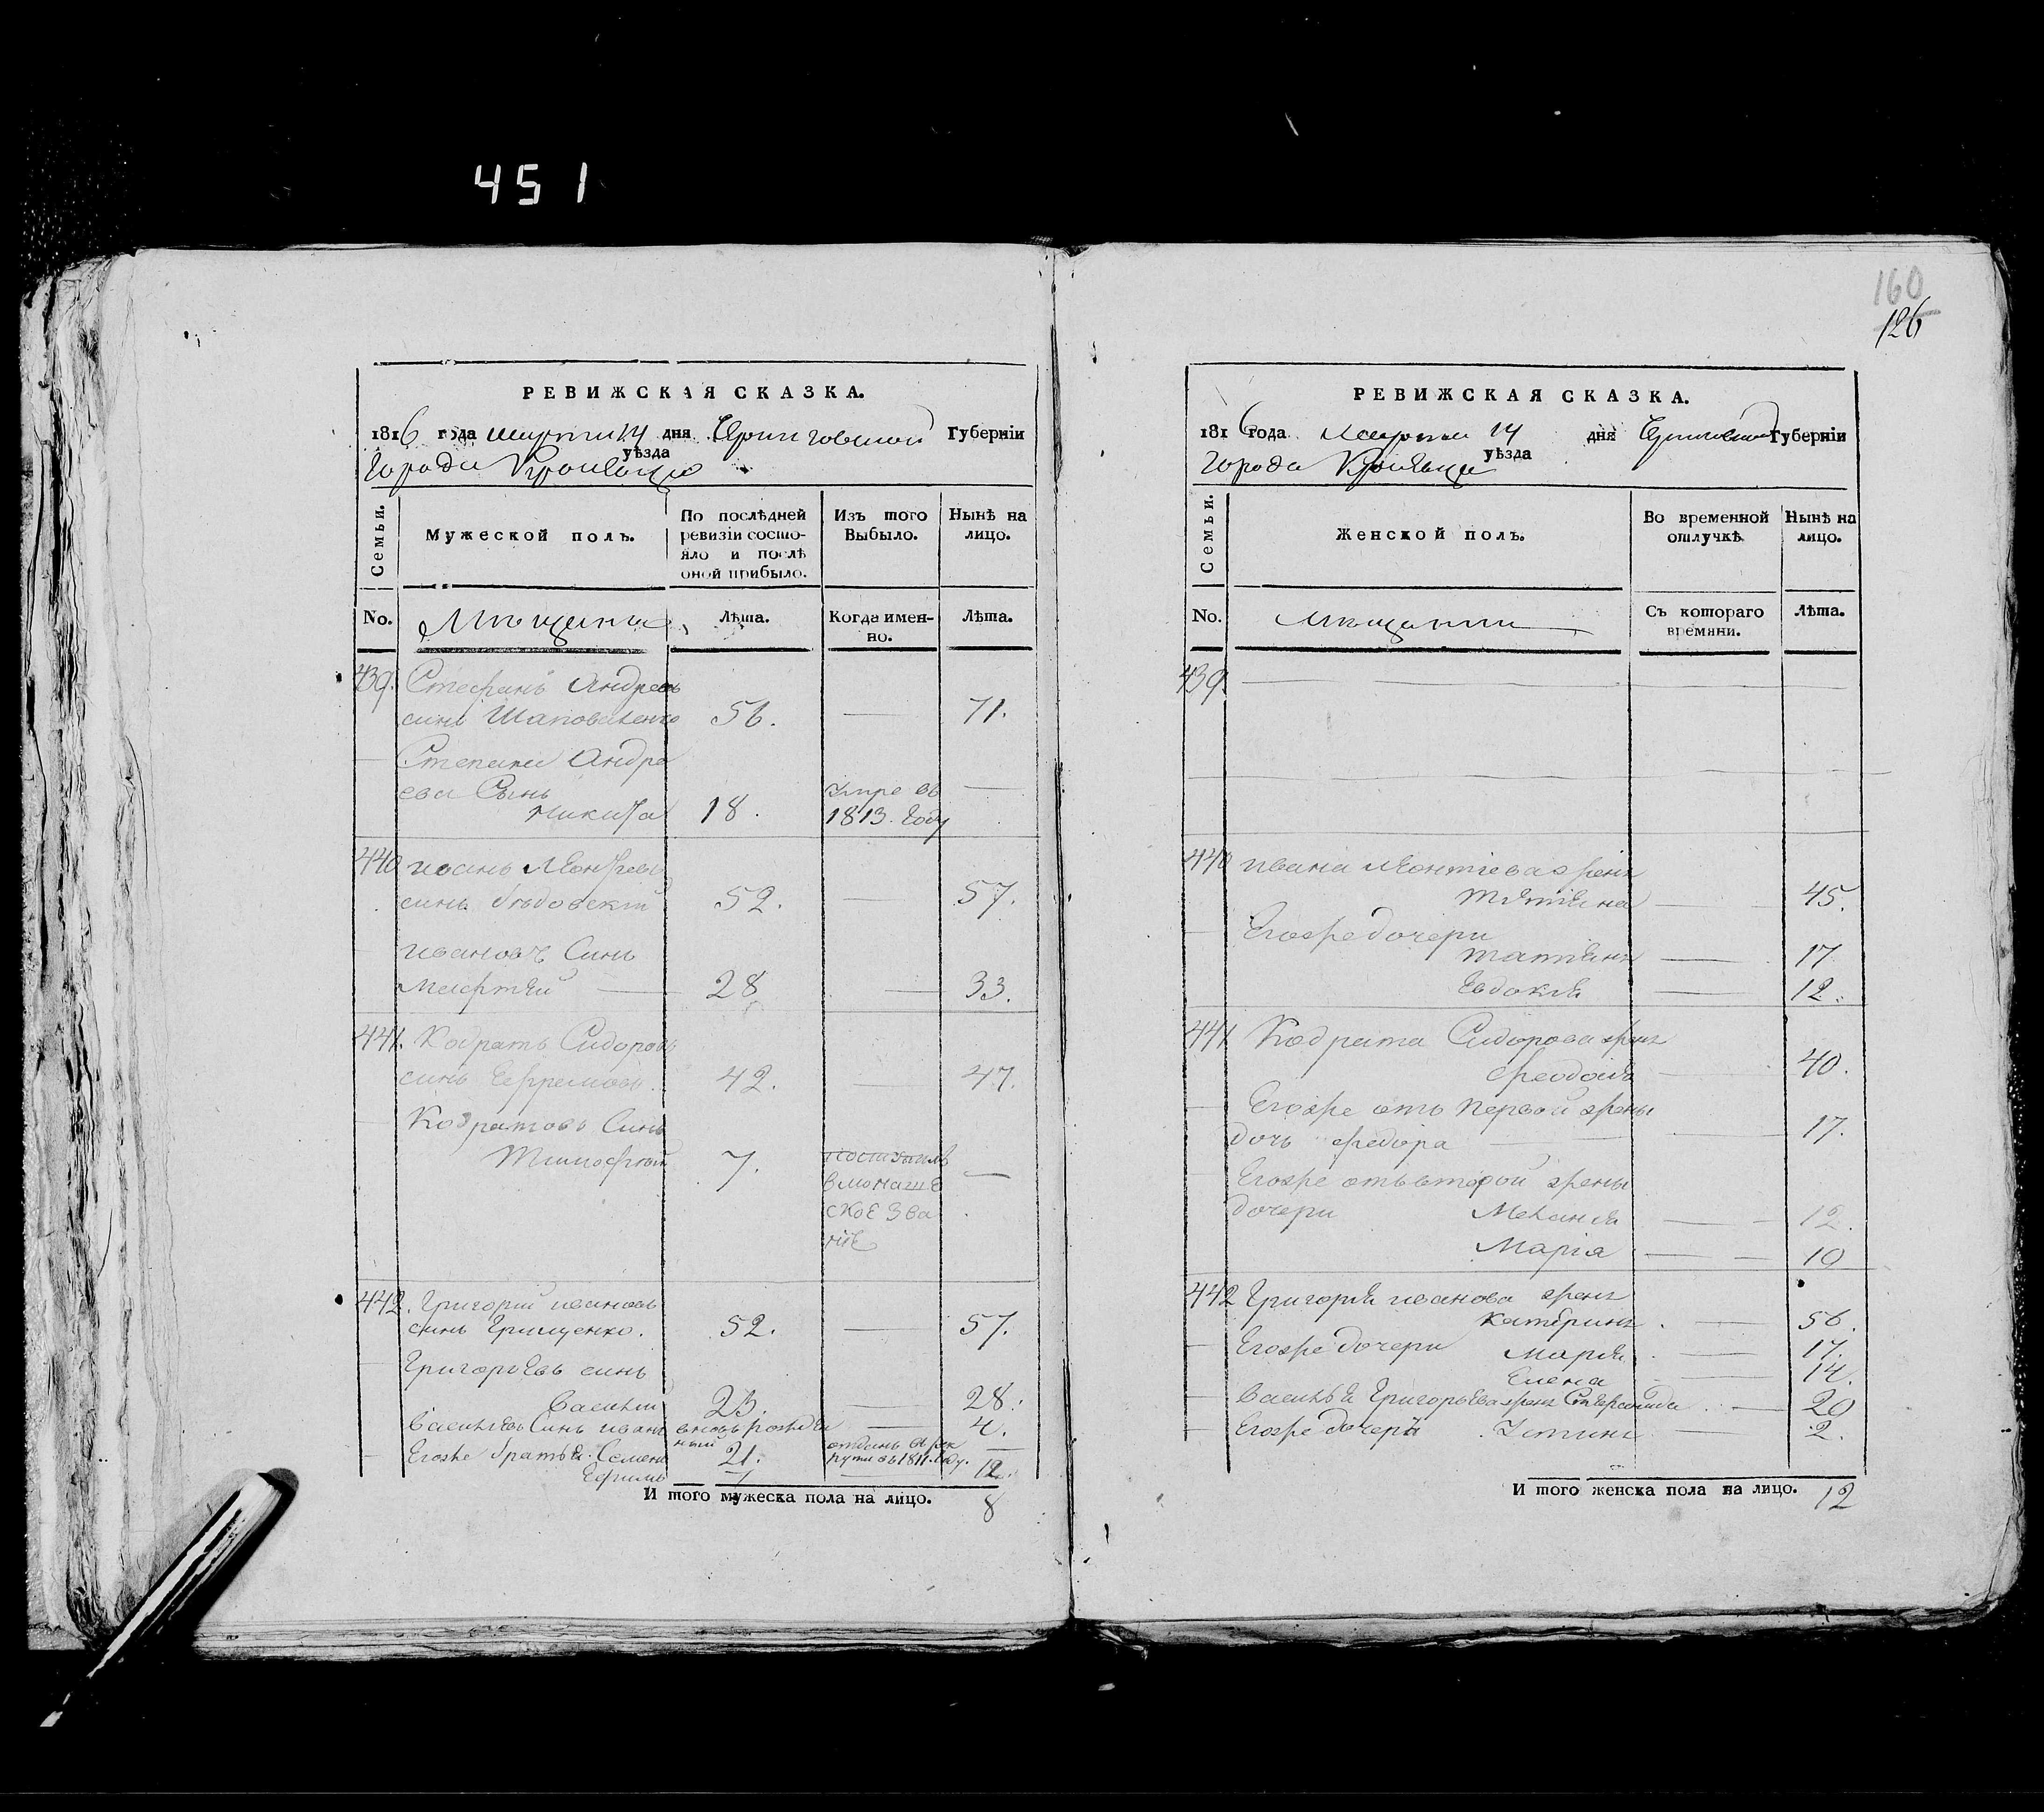 451
160
126
РЕВИЖСКАЯ СКАЗКА.
1816 года марта 14 дня Черниговской Губерніи
уѣзда
Города Кролевца
Семьи.
Мужеской полъ.
По послѣдней ревизіи состо-
яло и послѣ
оной прибыло.
Изъ того
Выбыло.
Нынѣ на
лицо.
No.
Мещане
Лѣта.
Когда имен-
но.
Лѣта.
439. Стефанъ Андреевъ
синъ Шаповаленко 56. — 71.
Степана Андре
ева Сынъ умре въ —
Никита 18. 1813. году
440 иванъ Леонтіевъ
синъ 52. — 57.
ивановъ Синъ
28 — 33.
441. Кодратъ Сидоровъ
синъ Ефремовъ. 42. 47.
Кодратовъ Синъ
Тимофей 7. поступилъ —
в монаше
ское зва
ніе
442. Григорій ивановъ
синъ Грищенко. 52. — 57.
Григорьевъ синъ
Василій 23. — 28.
Васильевъ Синъ иванъ вновь рожде — 4.
ный
Егоже братья Семенъ 21. отданъ в рек —
руты въ 1811. году.
Ефимъ 7 — 12.
И того мужеска пола на лицо. 8
РЕВИЖСКАЯ СКАЗКА.
1816 года марта 14 дня Черниговской Губерніи
уѣзда
города Кролевца
Семьи.
Женской полъ.
Во временной
отлучкѣ.
Нынѣ на
лицо.
No.
мещанки
Съ котораго
времяни.
Лѣта.
439
440 ивана Леонтіева жена
Татіяна — 45.
Егоже дочери
Татіяна — 17
Евдокія — 12.
441 Кодрата Сидорова жена
40.
Егоже отъ первой жены
дочь Федора — 17.
Егоже отъ второй жены
дочери Меланія — 12.
Марія — 10
442 Григорія иванова жена
Катерина. — 56.
Егоже дочери Марія. — 17.
Елена — 14.
Василья Григорьева жена — 20
Егоже дочерь Устина — 2.
И того женска пола на лицо. 12